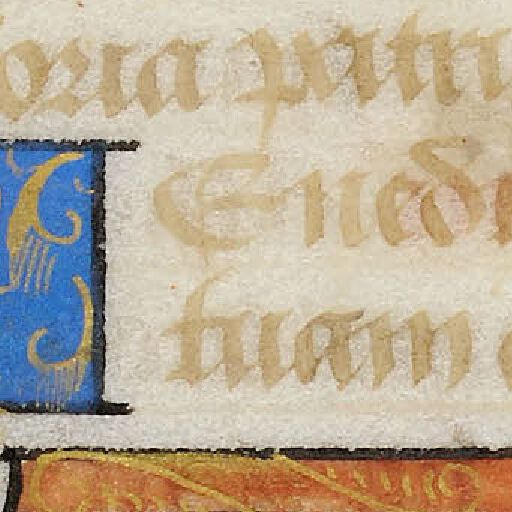 oria patri
Enedi
tuam